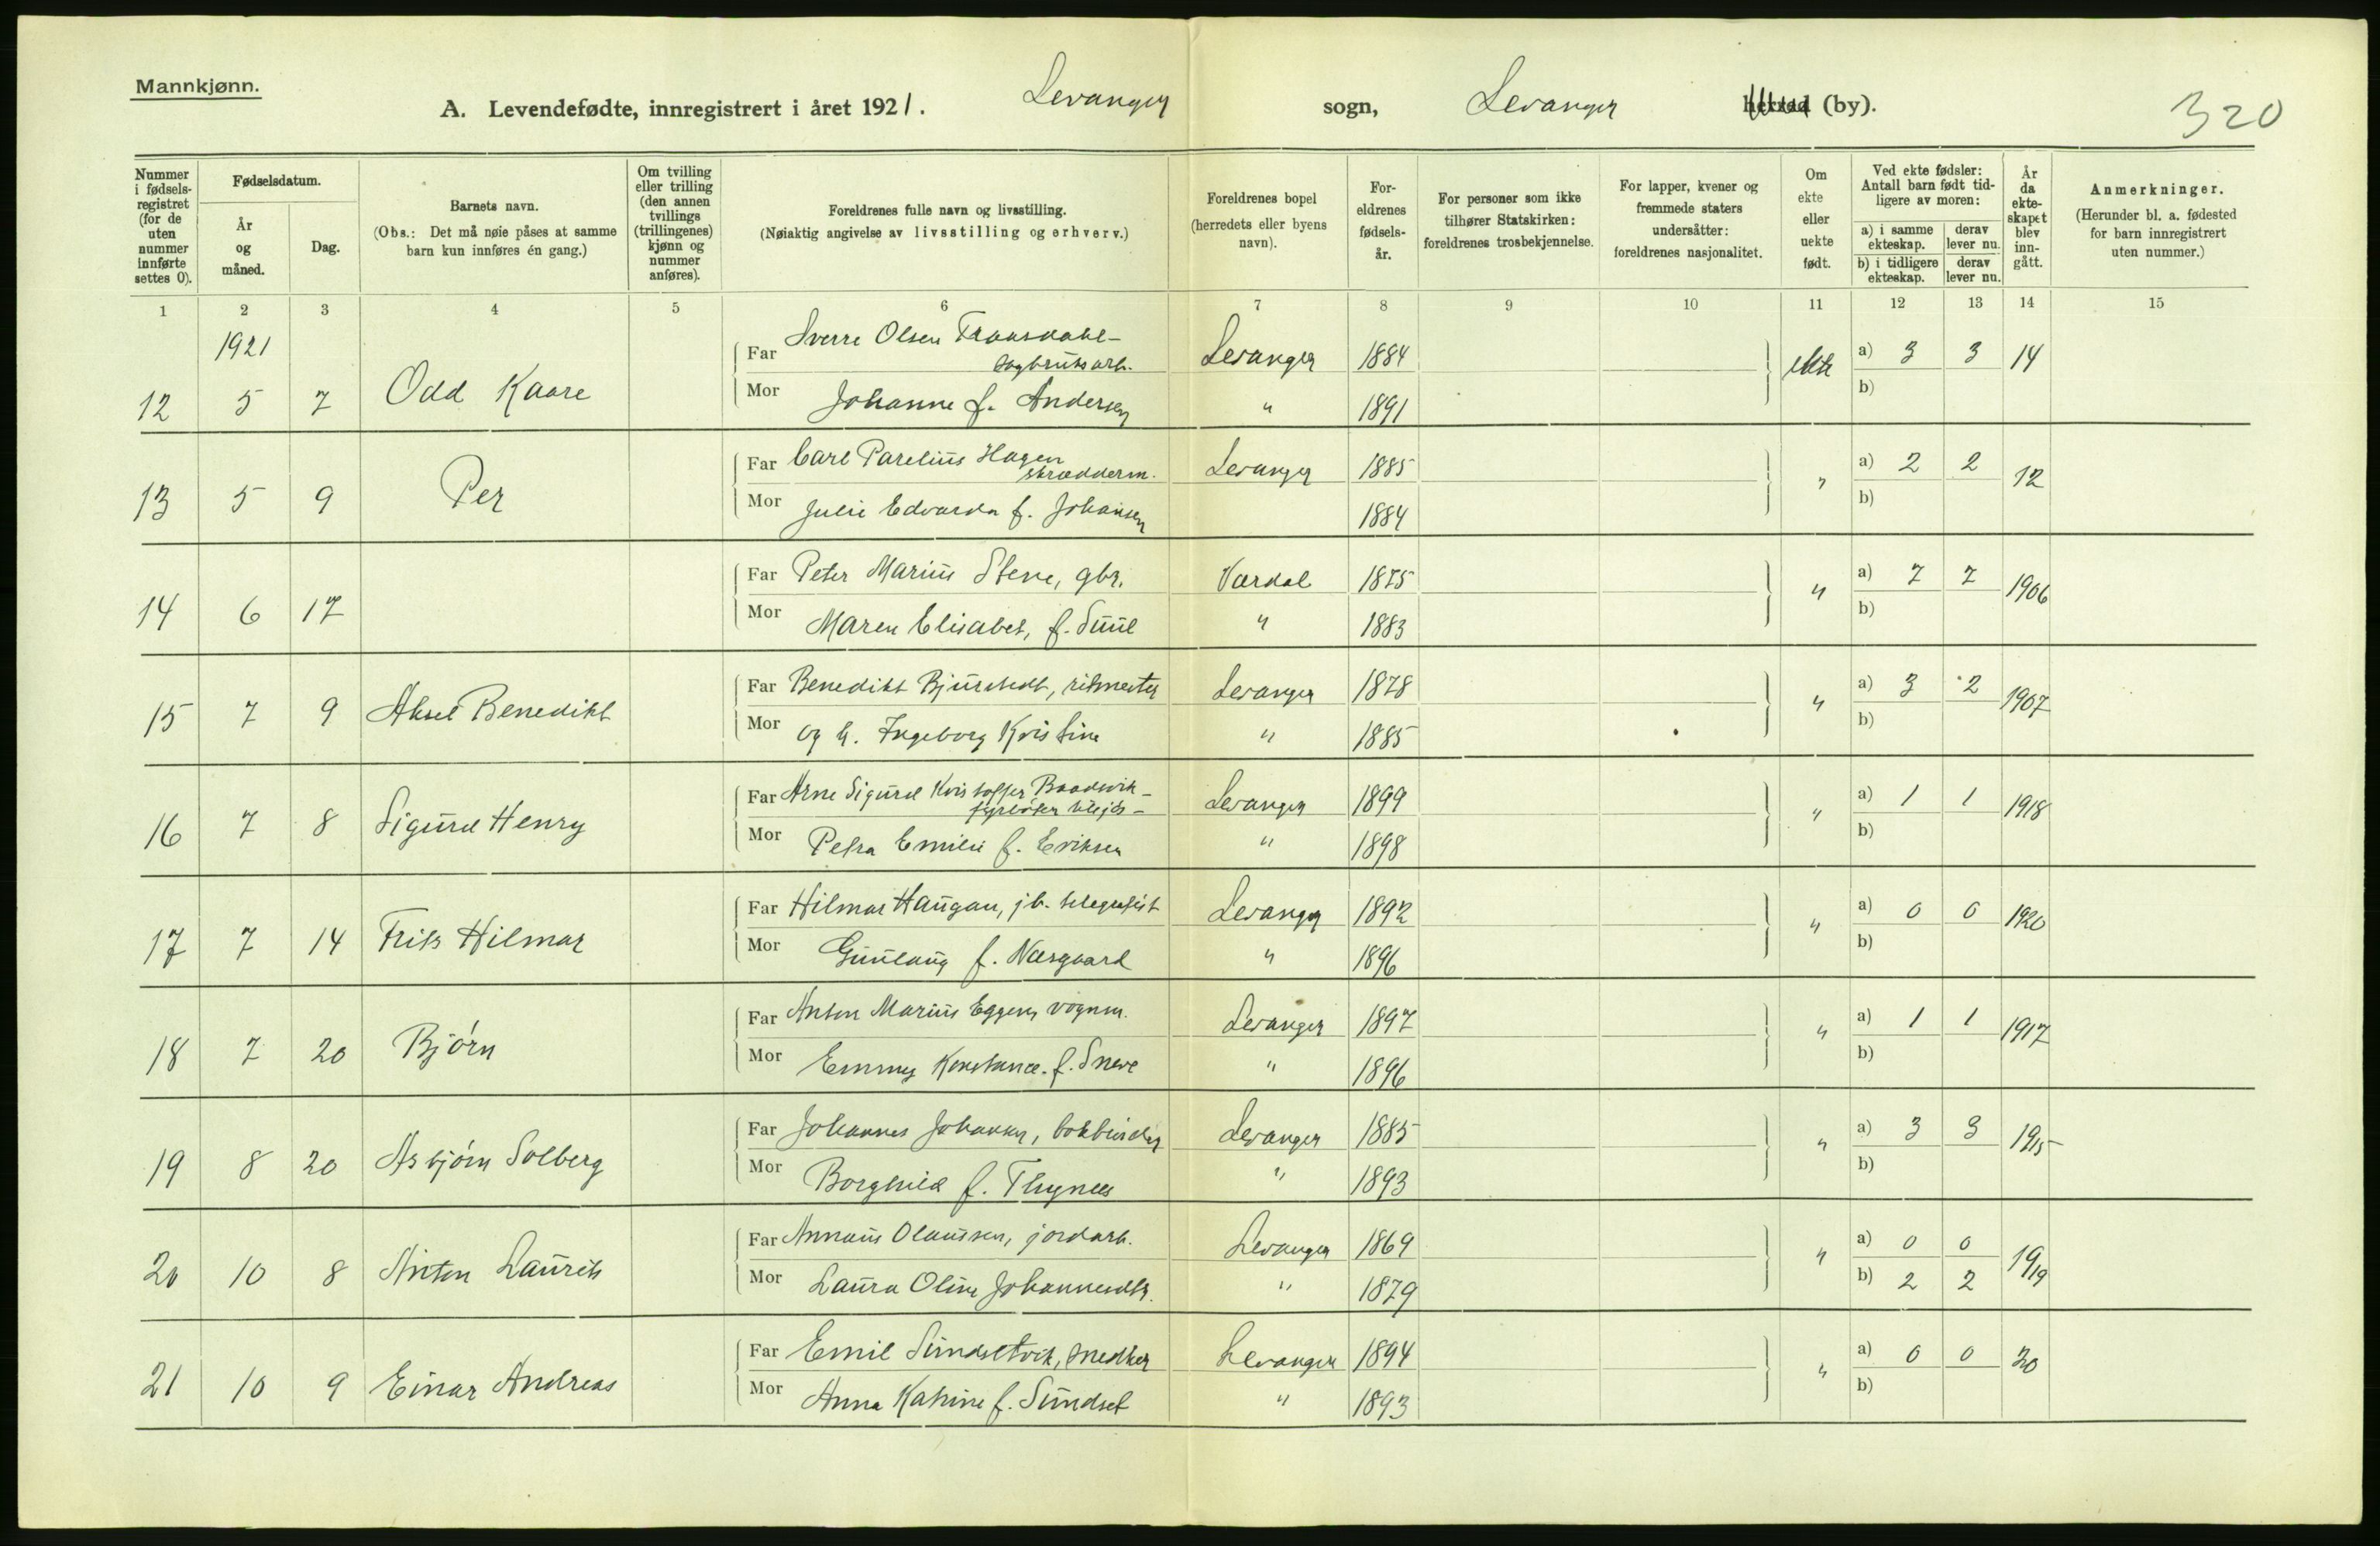 Mannkjønn.
A. Levendefødte, innregistrert i året 1921. Levanger sogn, Levanger herred (by).
320
Nummer i fødsels-registret (for de uten nummer innførte settes 0).
Fødselsdatum.
År og måned.
Dag.
Barnets navn.
(Obs.: Det må nøie påses at samme barn kun innføres én gang.)
Om tvilling eller trilling (den annen tvillings (trillingenes) kjønn og nummer anføres).
Foreldrenes fulle navn og livsstilling.
(Nøiaktig angivelse av livsstilling og erhverv.)
Foreldrenes bopel (herredets eller byens navn).
For-eldrenes fødsels-år.
For personer som ikke tilhører Statskirken: foreldrenes trosbekjennelse.
For lapper, kvener og fremmede staters undersåtter: foreldrenes nasjonalitet.
Om ekte eller uekte født.
Ved ekte fødsler: Antall barn født tid-ligere av moren:
a) i samme ekteskap. derav lever nu.
b) i tidligere ekteskap. derav lever nu.
År da ekte-skapet blev inn-gått.
Anmerkninger.
(Herunder bl. a. fødested for barn innregistrert uten nummer.)
1 2 3 4 5 6 7 8 9 10 11 12 13 14 15
1921
Far Sverre Olsen
sagbruksarb. Levanger 1884 ekte a) 3 3 14
12 5 7 Odd Kaare Mor Johanne f. Andersen " 1891 b)
Far Carl Parelius Hagen
skrædderm. Levanger 1885 " a) 2 2 12
13 5 9 Per Mor Julie Edvarda f. Johansen 1884 b)
Far Peter Marius Stene, gbr. Værdal 1875 " a) 7 7 1906
14 6 17 Mor Maren Elisabet, f. Suul " 1883 b)
Far Benedikt Bjurstedt, ritmester Levanger 1878 " a) 3 2 1907
15 7 9 Aksel Benedikt Mor og h. Ingeborg Kristine " 1885 b)
Far Arne Sigurd Kristoffer
Levanger 1899 " a) 1 1 1918
16 7 8 Sigurd Henry Mor Petra Emilie f. Eriksen " 1898 b)
Far Hilmar Haugan, jb. telegrafist Levanger 1892 " a) 0 0 1920
17 7 14 Frits Hilmar Mor Gunlaug f. Næsgaard " 1896 b)
Far Anton Marius Eggen, vognm. Levanger 1897 " a) 1 1 1917
18 7 20 Bjórn Mor Emmy Konstance. f. Sneve " 1896 b)
Far Johannes Johansen, bokbinder Levanger 1885 " a) 3 3 1915
19 8 20 Asbjórn Solberg Mor Borghild f. Thynes " 1893 b)
Far Annæus Olaussen, jordarb. Levanger 1869 " a) 0 0 1919
20 10 8 Anton Laurits Mor Laura Oline Johannesdtr. " 1879 b) 2 2
Far Emil Sundsetvik, snedker Levanger 1894 " a) 0 0 20
21 10 9 Einar Andreas Mor Anna Katrine f. Sundset " 1893 b)